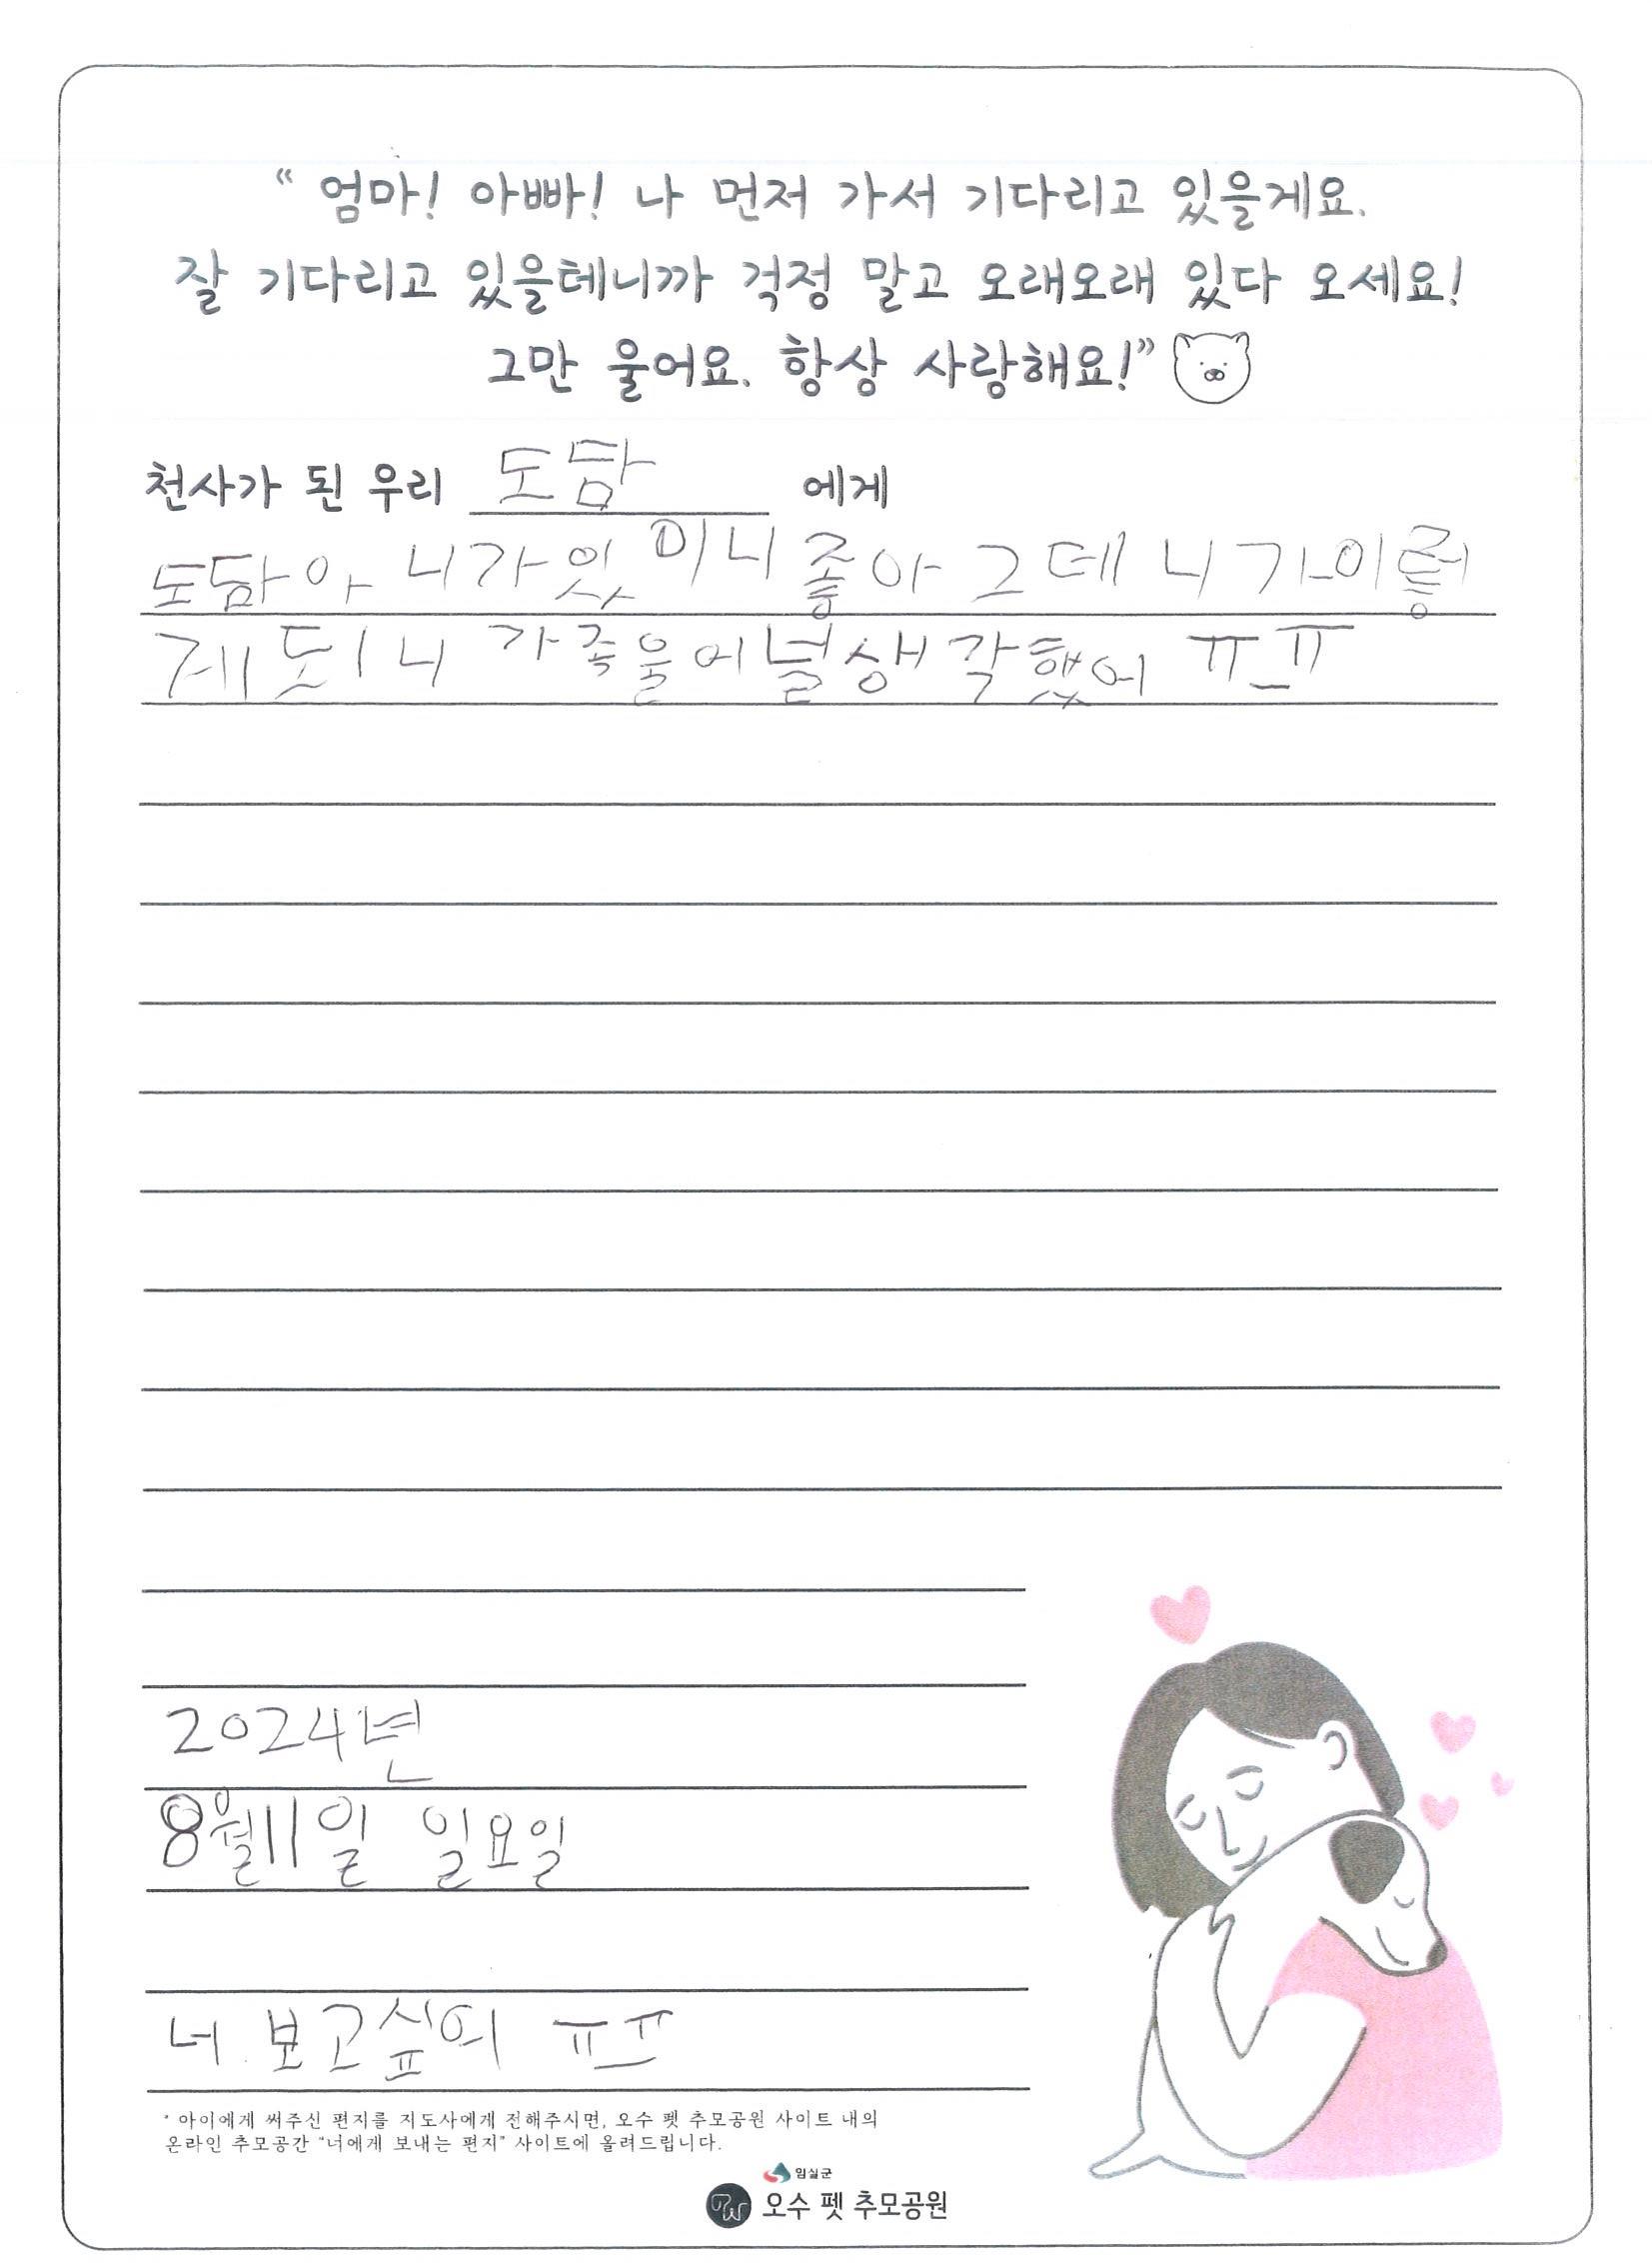 “ 엄마! 아빠! 나 먼저 가서 기다리고 있을게요.
잘 기다리고 있을테니까 걱정 말고 오래오래 있다 오세요!
그만 울어요. 항상 사랑해요!”
천사가 된 우리 도담 에게
도담아 니가있미니 좋아 그데 니가이렇
게 되니 가족울어널생각했어 ㅠ_ㅠ
2024년
8월11일 일요일
너 보고싶어 ㅠ_ㅠ
* 아이에게 써주신 편지를 지도사에게 전해주시면, 오수 펫 추모공원 사이트 내의
온라인 추모공간 “너에게 보내는 편지” 사이트에 올려드립니다.
임실군
오수 펫 추모공원